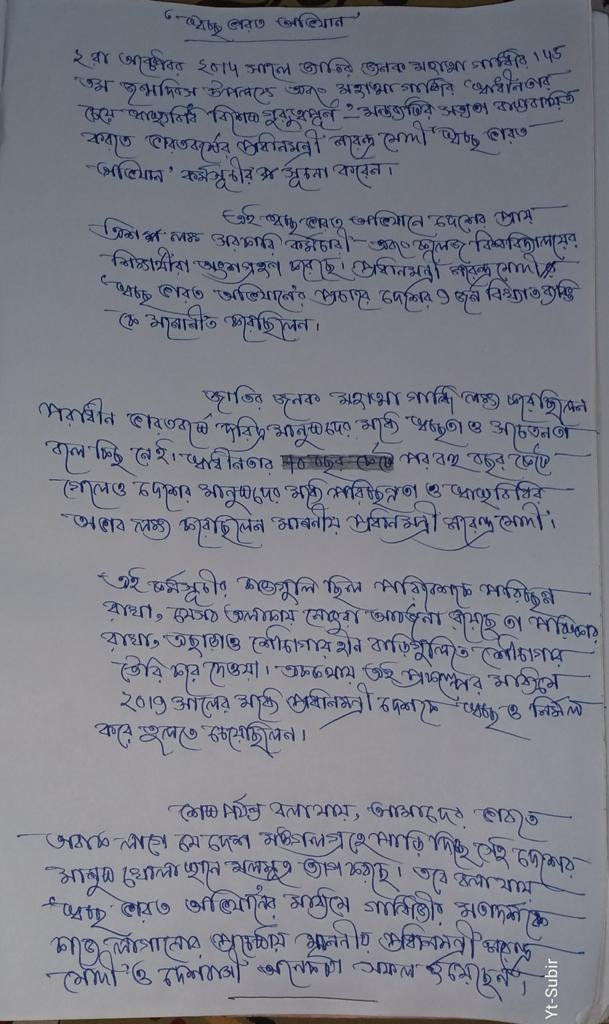 "স্বচ্ছ ভারত অভিযান"
২ রা অক্টোবর ২০১৪ সালে জাতির জনক মহাত্মা গান্ধির 145
তম জন্মদিবস উপলক্ষে এবং মহাত্মা গান্ধির 'স্বাধীনতার
চেয়ে স্বাস্থ্যবিধি বিশেষ গুরুত্বপূর্ণ'- মন্তব্যটির সত্যতা বাস্তবায়িত
করতে ভারতবর্ষের প্রধানমন্ত্রী নরেন্দ্র মোদী 'স্বচ্ছ ভারত
অভিযান' কর্মসূচীর সূচনা করেন।
এই স্বচ্ছ ভারত অভিযানে দেশের প্রায়
ত্রিশ লক্ষ সরকারি কর্মচারী এবং কলেজ বিশ্ববিদ্যালয়ের
শিক্ষার্থীরা অংশগ্রহণ করেছে। প্রধানমন্ত্রী নরেন্দ্র মোদী
স্বচ্ছ ভারত অভিযানের প্রচারে দেশের ৯ জন বিখ্যাত ব্যক্তি
কে মনোনীত করেছিলেন।
জাতির জনক মহাত্মা গান্ধি লক্ষ্য করেছিলেন
পরাধীন ভারতবর্ষে দরিদ্র মানুষদের মধ্যে স্বচ্ছতা ও সচেতনতা
বলে কিছু নেই। স্বাধীনতার পর বহু বছর কেটে
গেলেও দেশের মানুষদের মধ্যে পরিচ্ছন্নতা ও স্বাস্থ্যবিধির
অভাব লক্ষ্য করেছিলেন মাননীয় প্রধানমন্ত্রী নরেন্দ্র মোদী।
এই কর্মসূচীর শর্তগুলি ছিল পরিবেশকে পরিচ্ছন্ন
রাখা, যেসব এলাকায় নোংরা আবর্জনা রয়েছে তা পরিষ্কার
রাখা, এছাড়াও শৌচাগার হীন বাড়িগুলিতে শৌচাগার
তৈরি করে দেওয়া। এককথায় এই প্রকল্পের মাধ্যমে
২০১৯ সালের মধ্যে প্রধানমন্ত্রী দেশকে স্বচ্ছ ও নির্মল
করে তুলতে চেয়েছিলেন।
শেষ পর্যন্ত বলা যায়, আমাদের ভাবতে
অবাক লাগে যে দেশ মঙ্গলগ্রহে পাড়ি দিচ্ছে সেই দেশের
মানুষ খোলা স্থানে মলমূত্র ত্যাগ করছে। তবে বলা যায়
স্বচ্ছ ভারত অভিযানের মাধ্যমে গান্ধিজীর মতাদর্শকে
কাজে লাগানোর প্রচেষ্টায় মাননীয় প্রধানমন্ত্রী নরেন্দ্র
মোদী ও দেশবাসী অনেকটা সফল হয়েছেন।
Yt-Subir